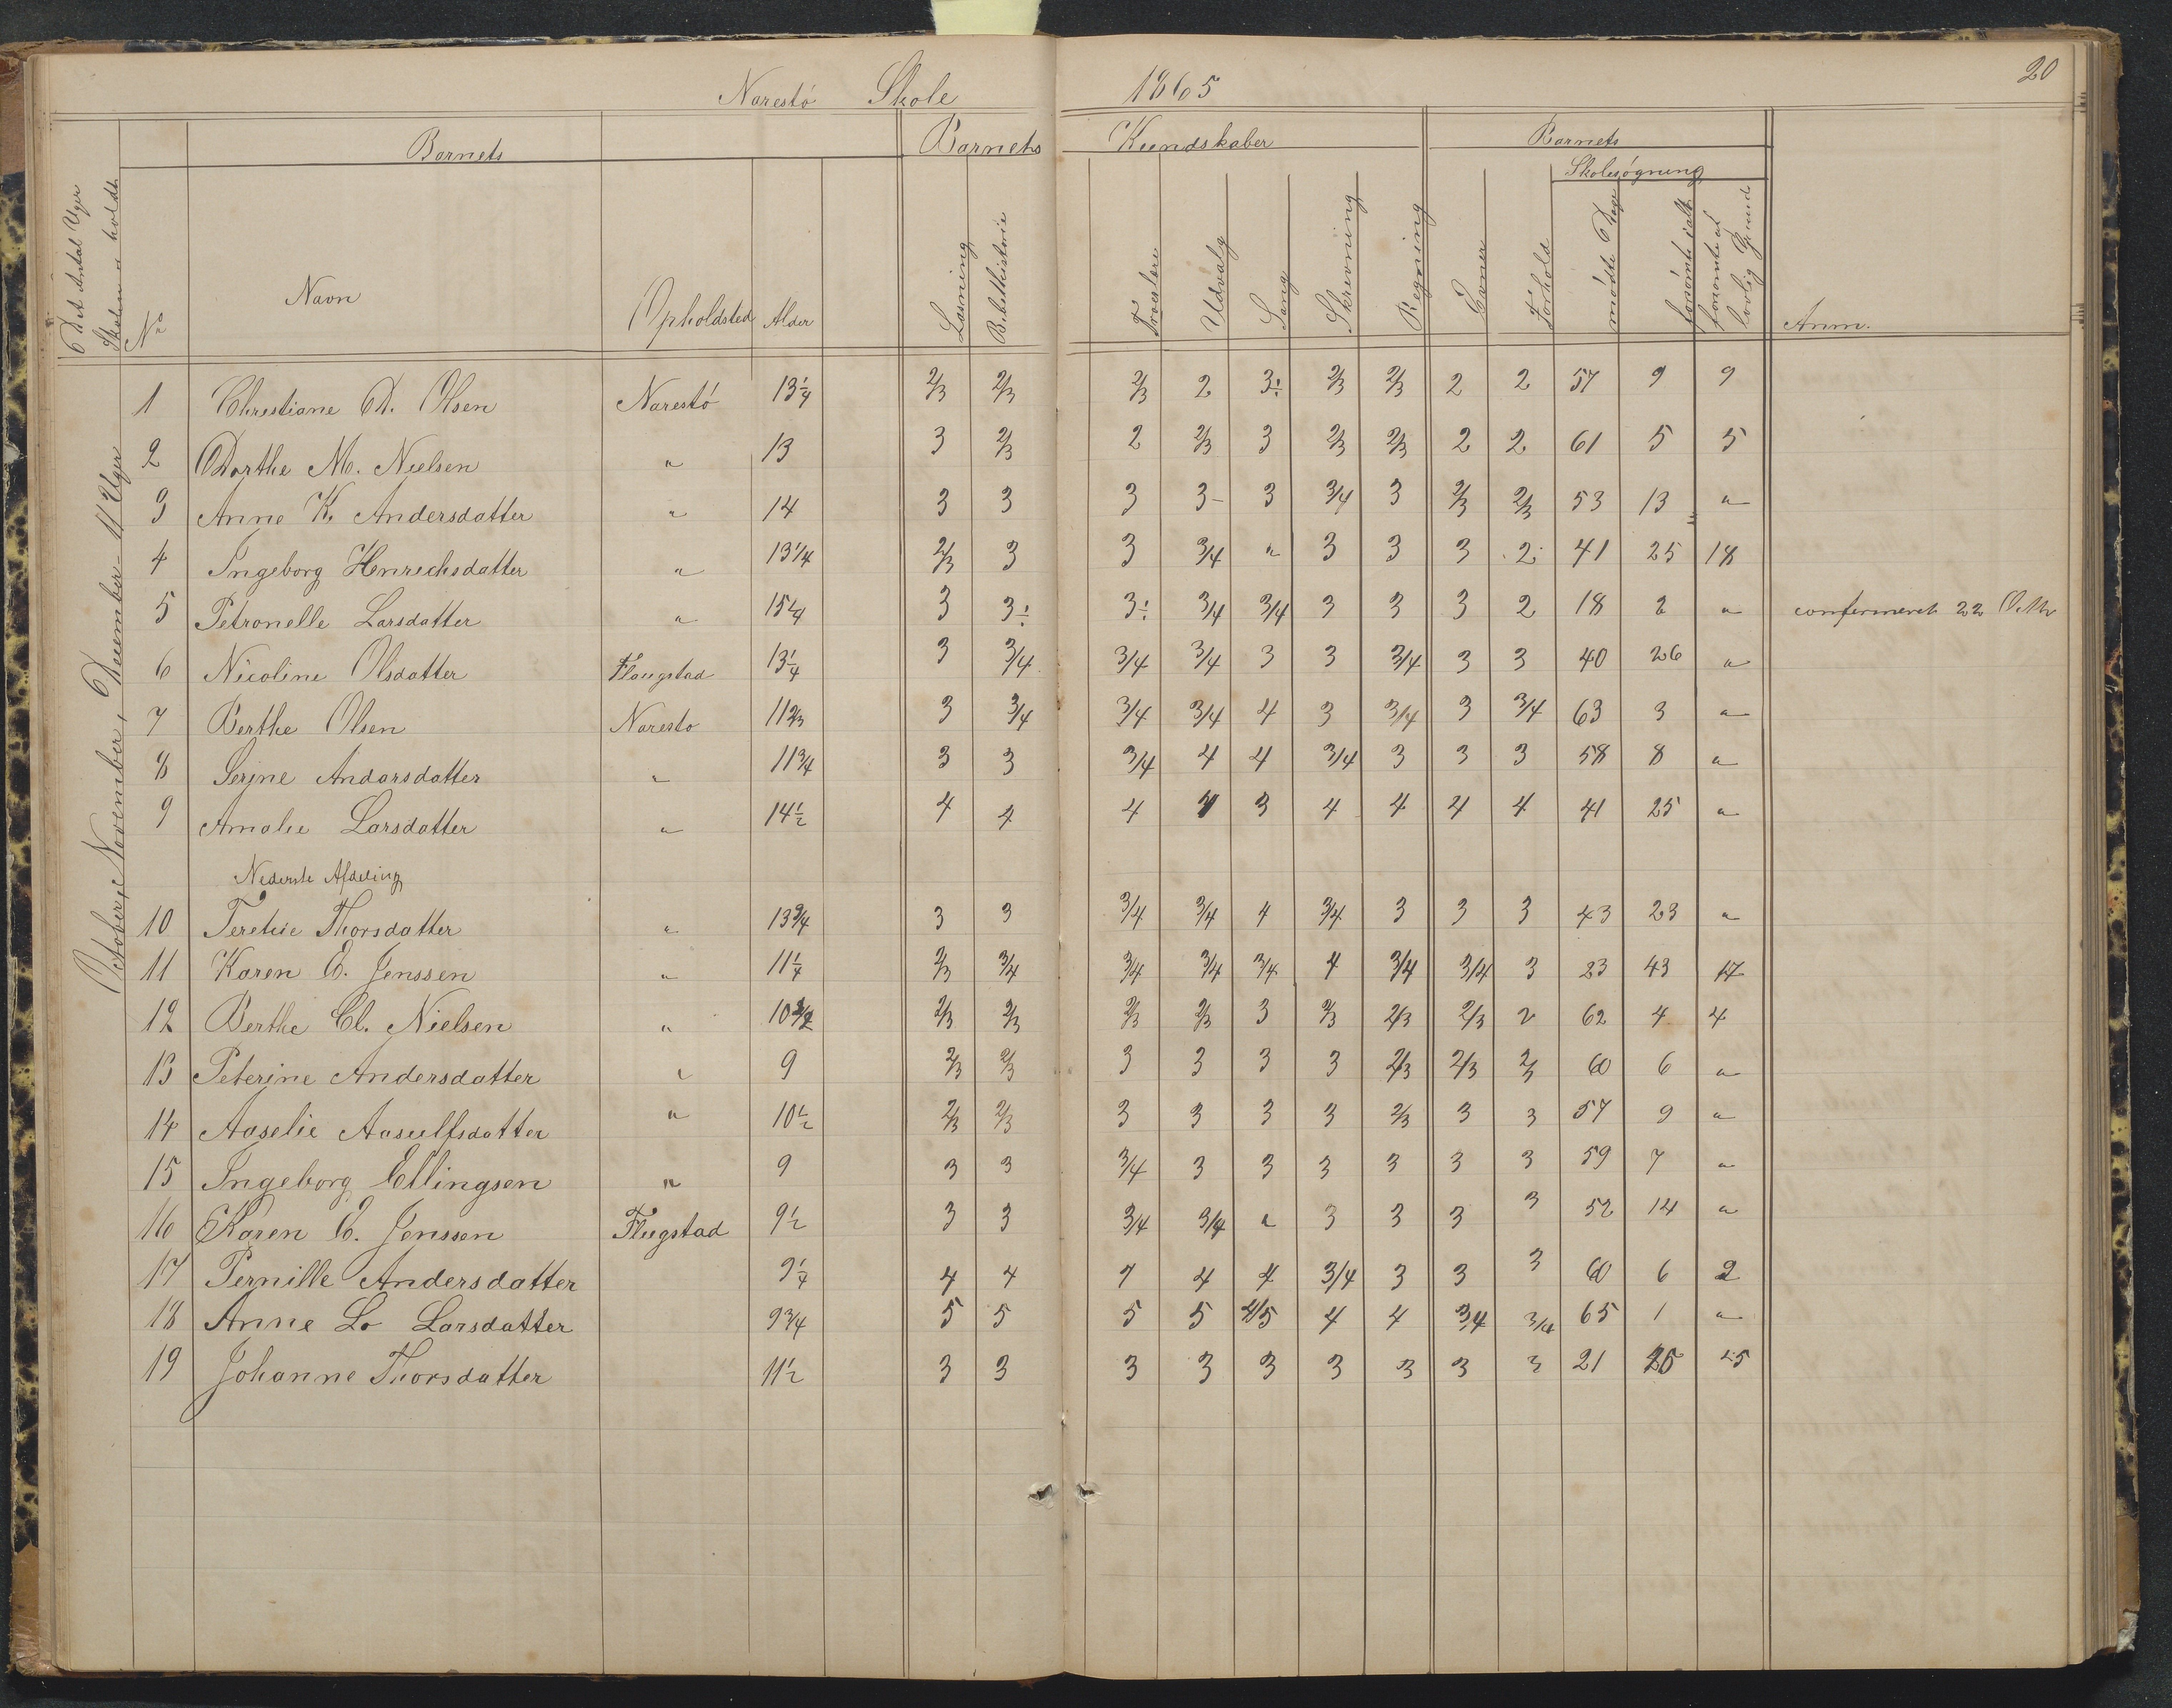 Narestö Skole 1865 20
Barnets Barnets Kundskaber Barnets
Skolesøgning
Det Antal Uger Skolen er holdt
No Navn Opholdsted Alder Læsning Bibelhistorie Troeslære Udvalg Sang Skrivning Regning Evner Forhold mödte Dage forsömte ialt forsömte af lovlig Grund Anm.
October, November, December - 11 Uger
1 Christiane D. Olsen Narestö 13 1/4 2/3 2/3 2/3 2 3÷ 2/3 2/3 2 2 57 9 9
2 Dorthe M. Nielsen " 13 3 2/3 2 2/3 3 2/3 2/3 2 2 61 5 5
3 Anne K. Andersdatter " 14 3 3 3 3- 3 3/4 3 2/3 2/3 53 13 "
4 Ingeborg Henrichsdatter " 13 1/4 2/3 3 3 3/4 " 3 3 3 2 41 25 18
5 Petronelle Larsdatter " 15 1/4 3 3÷ 3÷ 3/4 3/4 3 3 3 2 18 2 " confirmeret 22 Octbr
6 Nicoline Olsdatter Flougstad 13 1/4 3 3/4 3/4 3/4 3 3 3/4 3 3 40 26 "
7 Berthe Olsen Naresto 11 2/3 3 3/4 3/4 3/4 4 3 3/4 3 3/4 63 3 "
8 Serine Andersdatter " 11 3/4 3 3 3/4 4 4 3/4 3 3 3 58 8 "
9 Amalie Larsdatter " 14 1/2 4 4 4 4 3 4 4 4 4 41 25 "
Nederste Afdeling
10 Terethie Thorsdatter " 13 3/4 3 3 3/4 3/4 4 3/4 3 3 3 43 23 "
11 Karen E. Jenssen " 11 1/4 2/3 3/4 3/4 3/4 3/4 4 3/4 3/4 3 23 43 17
12 Berthe Cl. Nielsen " 10 2/3 2/3 2/3 2/3 3 2/3 2/3 2/3 2 62 4 4
13 Peterine Andersdatter " 9 2/3 2/3 3 3 3 3 2/3 2/3 2/3 60 6 "
14 Aaselie Aasulfsdatter " 10 1/2 2/3 2/3 3 3 3 3 2/3 3 3 57 9 "
15 Ingeborg Ellingsen " 9 3 3 3/4 3 3 3 3 3 3 59 7 "
16 Karen C. Jenssen Flugstad 9 1/2 3 3 3/4 3/4 " 3 3 3 3 52 14 "
17 Pernille Andersdatter 9 1/4 4 4 4 4 4 3/4 3 3 3 60 6 2
18 Anne Lo Larsdatter 9 3/4 5 5 5 5 4/5 4 4 3/4 3/4 65 1 "
19 Johanne Thorsdatter 11 1/2 3 3 3 3 3 3 3 3 3 21 25 25